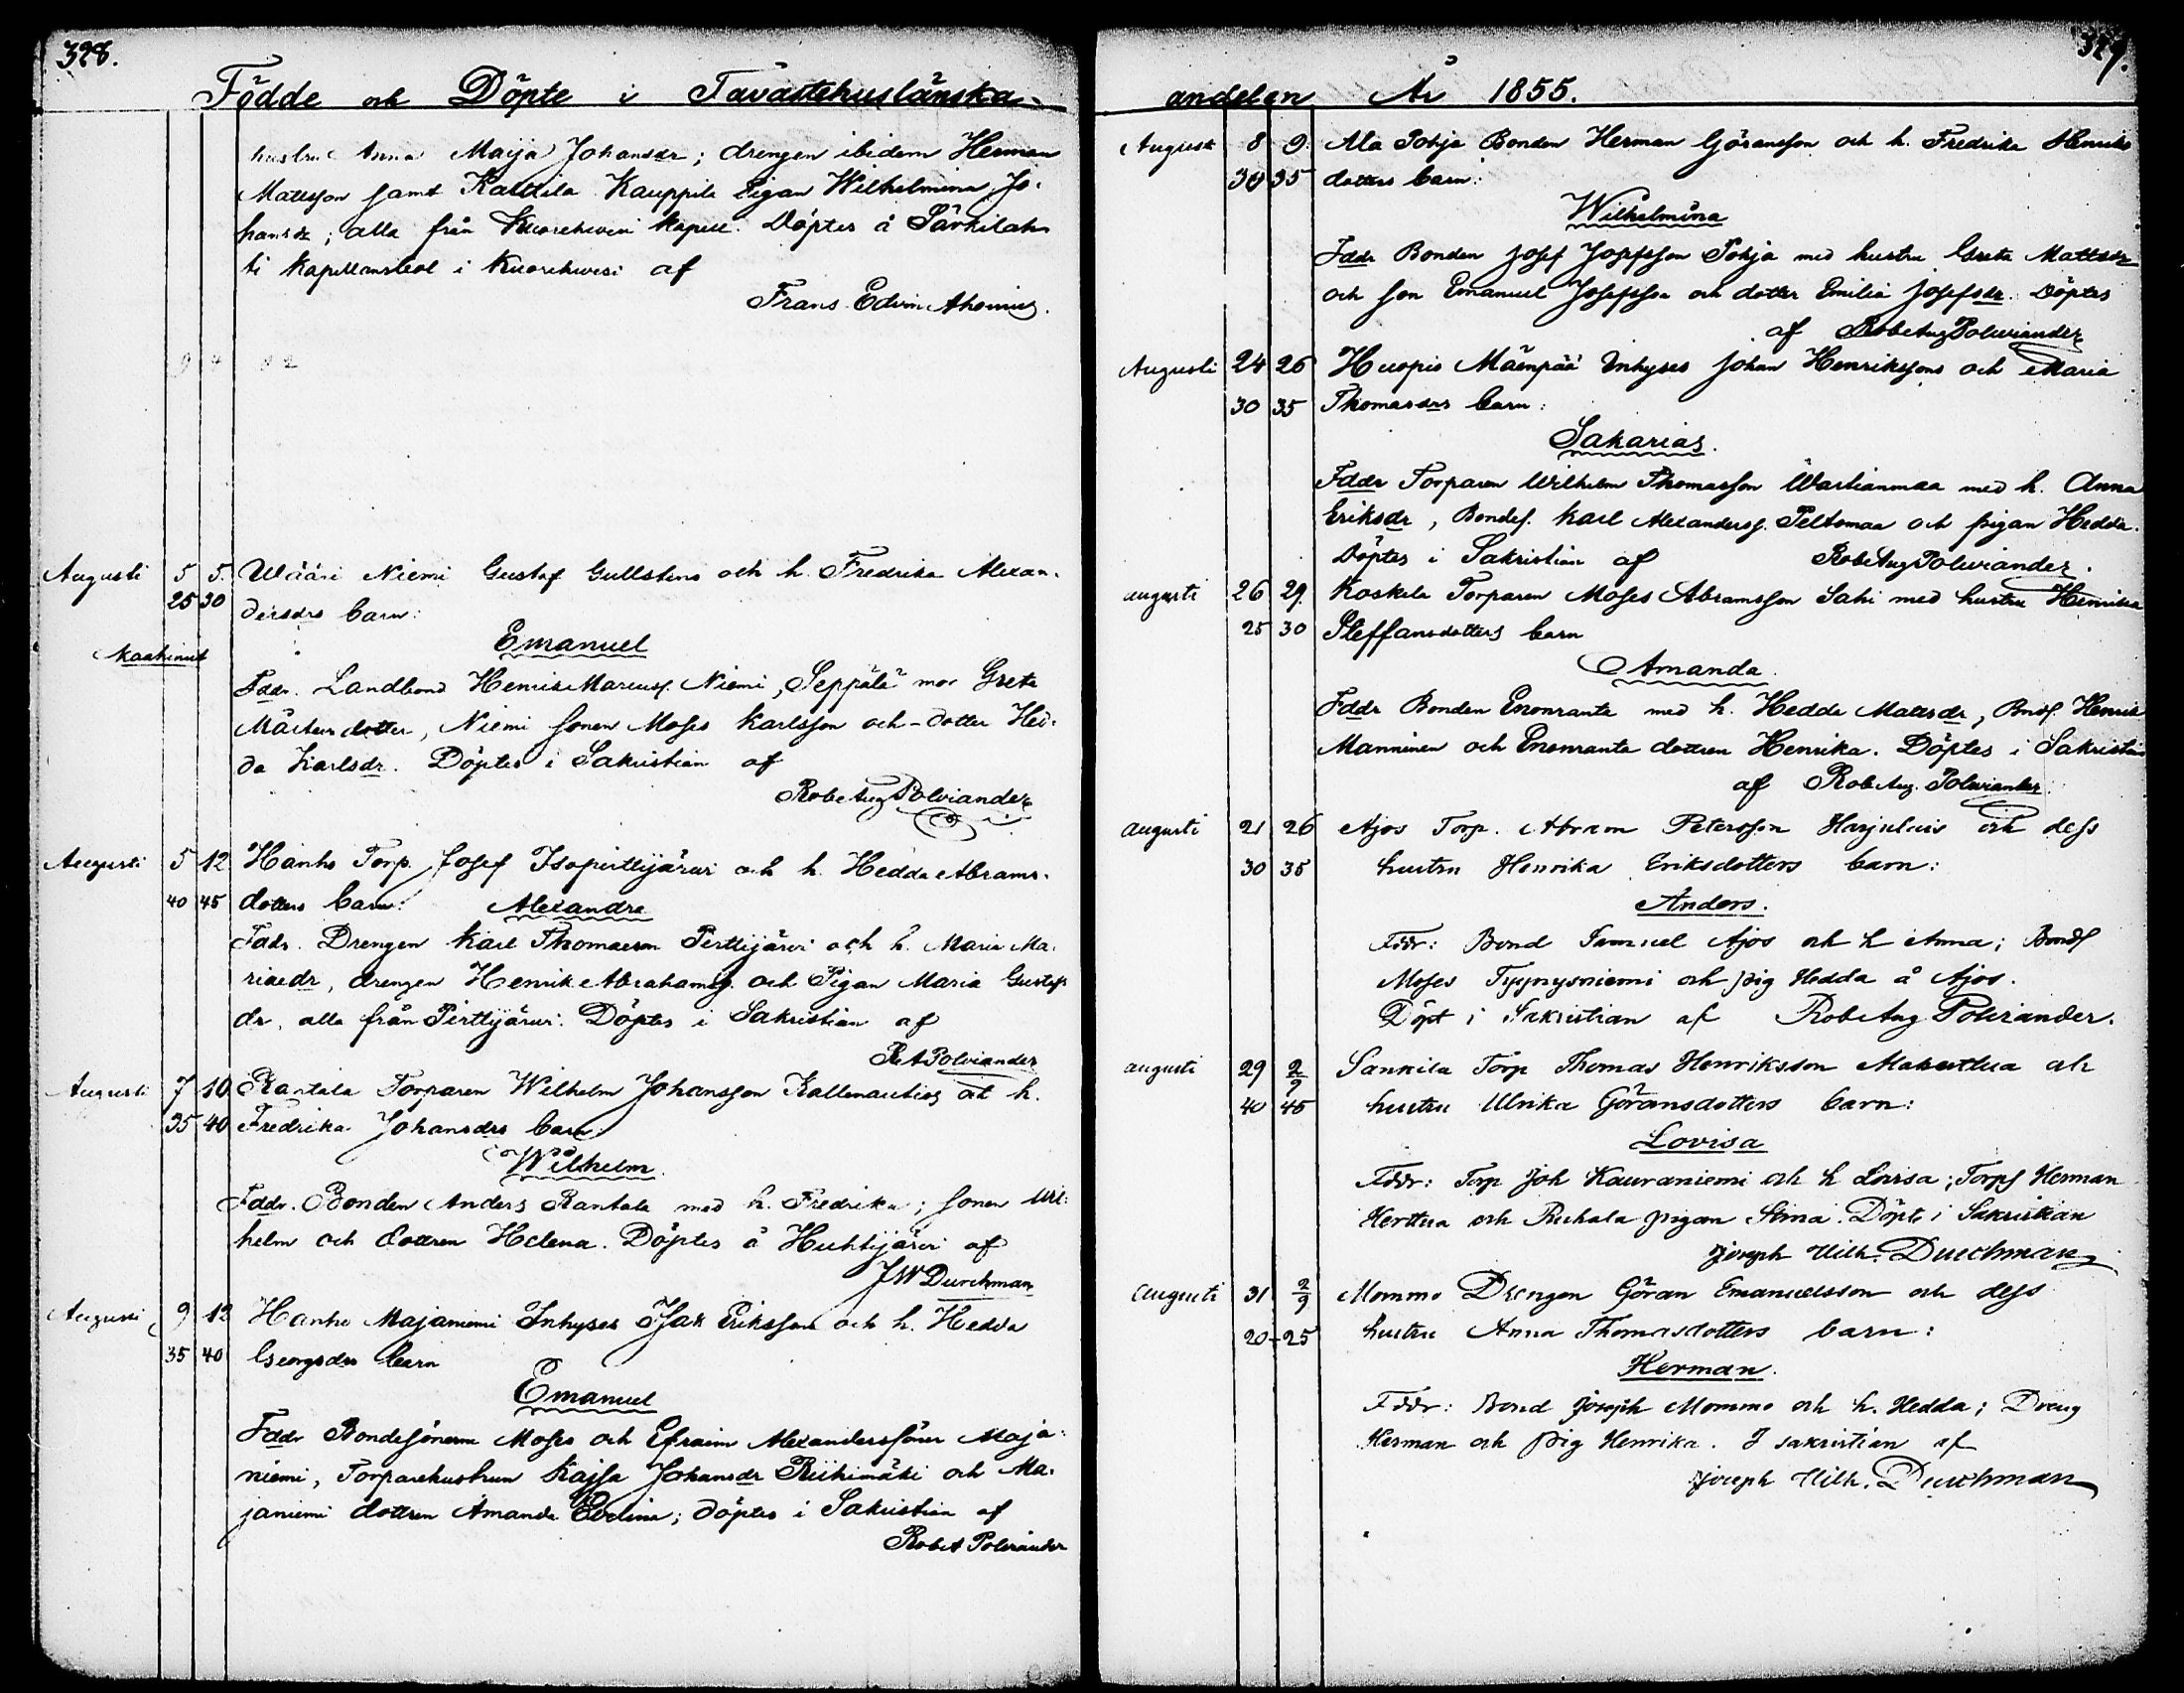 328.
Födde och Döpte i Tavastehuslänska-
hustru Anna Maija Johansdr; drengen ibidem Herman
Mattsson samt Kauppila Pigan Wilhelmina Jo-
hansdr; alla från Kuorehvesi Kapell. Döptes å Särkilah-
ti Kapellansbol i Kuorehvesi af
Frans Edvin Ahonius.
Augusti 5 5. Wääri Niemi Gustaf Gullstens och h. Fredrika Alexan-
25 30 dersdrs barn:
Emanuel
Fddr. Landbond Henrik Marcusf. Niemi, Seppälä mor Greta
Mårtensdotter, Niemi sonen Moses Karlsson och dotter Hed-
da Karlsdr. Döptes i Sakristian af
Rob Aug Polviander
Augusti 5 12 Hanho Torp. Josef Isopirttijärvi och h. Hedda Abrams-
40 45 dotters barn: Alexandra
Fddr. Drengen Karl Thomasson Pirttijärvi och h. Maria Ma-
riaedr, drengen Henrik Abrahamsf. och Pigan Maria Gustafs
dr, alla från Pirttijärvi. Döptes i Sakristian af
R A Polviander
Augusti 7 10 Rantala Torparen Wilhelm Johansson Kallenautios och h.
35 40 Fredrika Johansdrs barn:
Wilhelm
Fddr. Bonden Anders Rantala med h. Fredrika; sonen Wil-
helm och dottren Helena. Döptes å Huhtijärvi af
JW Durchman
Augusti 9 12 Hanho Majaniemi Inhyses Isak Eriksson och h. Hedda
35 40 Georgsdrs barn
Emanuel
Fddr Bondesönerne Moses och Efraim Alexanderssöner Maja-
niemi, Torparehustrun Kajsa Johansdr Riihimäki och Ma-
janiemi dottren Amanda Evelina; döptes i Sakristian af
Rob A Polviander
329.
andelen År 1855.
Augusti 8 9. Ala Pohja Bonden Herman Göransson och h. Fredrika Henriks
30 35 dotters barn:
Wilhelmina
Fddr Bonden Josef Josefsson Pohja med hustru Greta Mattsdr
och son Emanuel Josefsson och dotter Emilia Josefsdr. Döptes
af Rob Aug Polviander
Augusti 24 26 Huopio Mäenpää Inhyses Johan Henrikssons och Maria
30 35 Thomasdrs barn:
Sakarias.
Fddr Torparen Wilhelm Thomasson Wartianmaa med h. Anna
Eriksdr, Bondes. Karl Alexandersf. Peltomaa och pigan Hedda.
Döptes i Sakristian af Rob Aug Polviander.
augusti 26 29. Koskela Torparen Moses Abramsson Sahi med hustru Henrika
25 30 Steffansdotters barn
Amanda
Fddr Bonden Enonranta med h. Hedda Mattsdr, Bndf. Henrik
Manninen och Enonranta dottren Henrika. Döptes i Sakristian
af Rob Aug. Polviander.
augusti 21 26 Ajos Torp. Abram Petersson Harjulais och dess
30 35 hustru Henrika Eriksdotters barn:
Anders.
Fddr: Bond Samuel Ajos och h Anna; Bondf
Moses Tyynysniemi och pig Hedda å Ajos.
Döpt i Sakristian af Rob Aug Polviander.
augusti 29 2/9 Sankila Torp Thomas Henriksson och
40 45 hustru Ulrika Göransdotters barn:
Lovisa
Fddr: Torp Joh Kauraniemi och h Lovisa; Torpf Herman
Kerttua och Ruhala pigan Stina. Döpt i Sakristian
Joseph Wilh. Durchman
augusti 31 2/9 Mommo Drengen Göran Emanuelsson och dess
20 25 hustru Anna Thomasdotters barn:
Herman.
Fddr: Bond Joseph Mommo och h. Hedda; Dreng
Herman och pig Henrika. I sakristian af
Joseph Wilh. Durchman